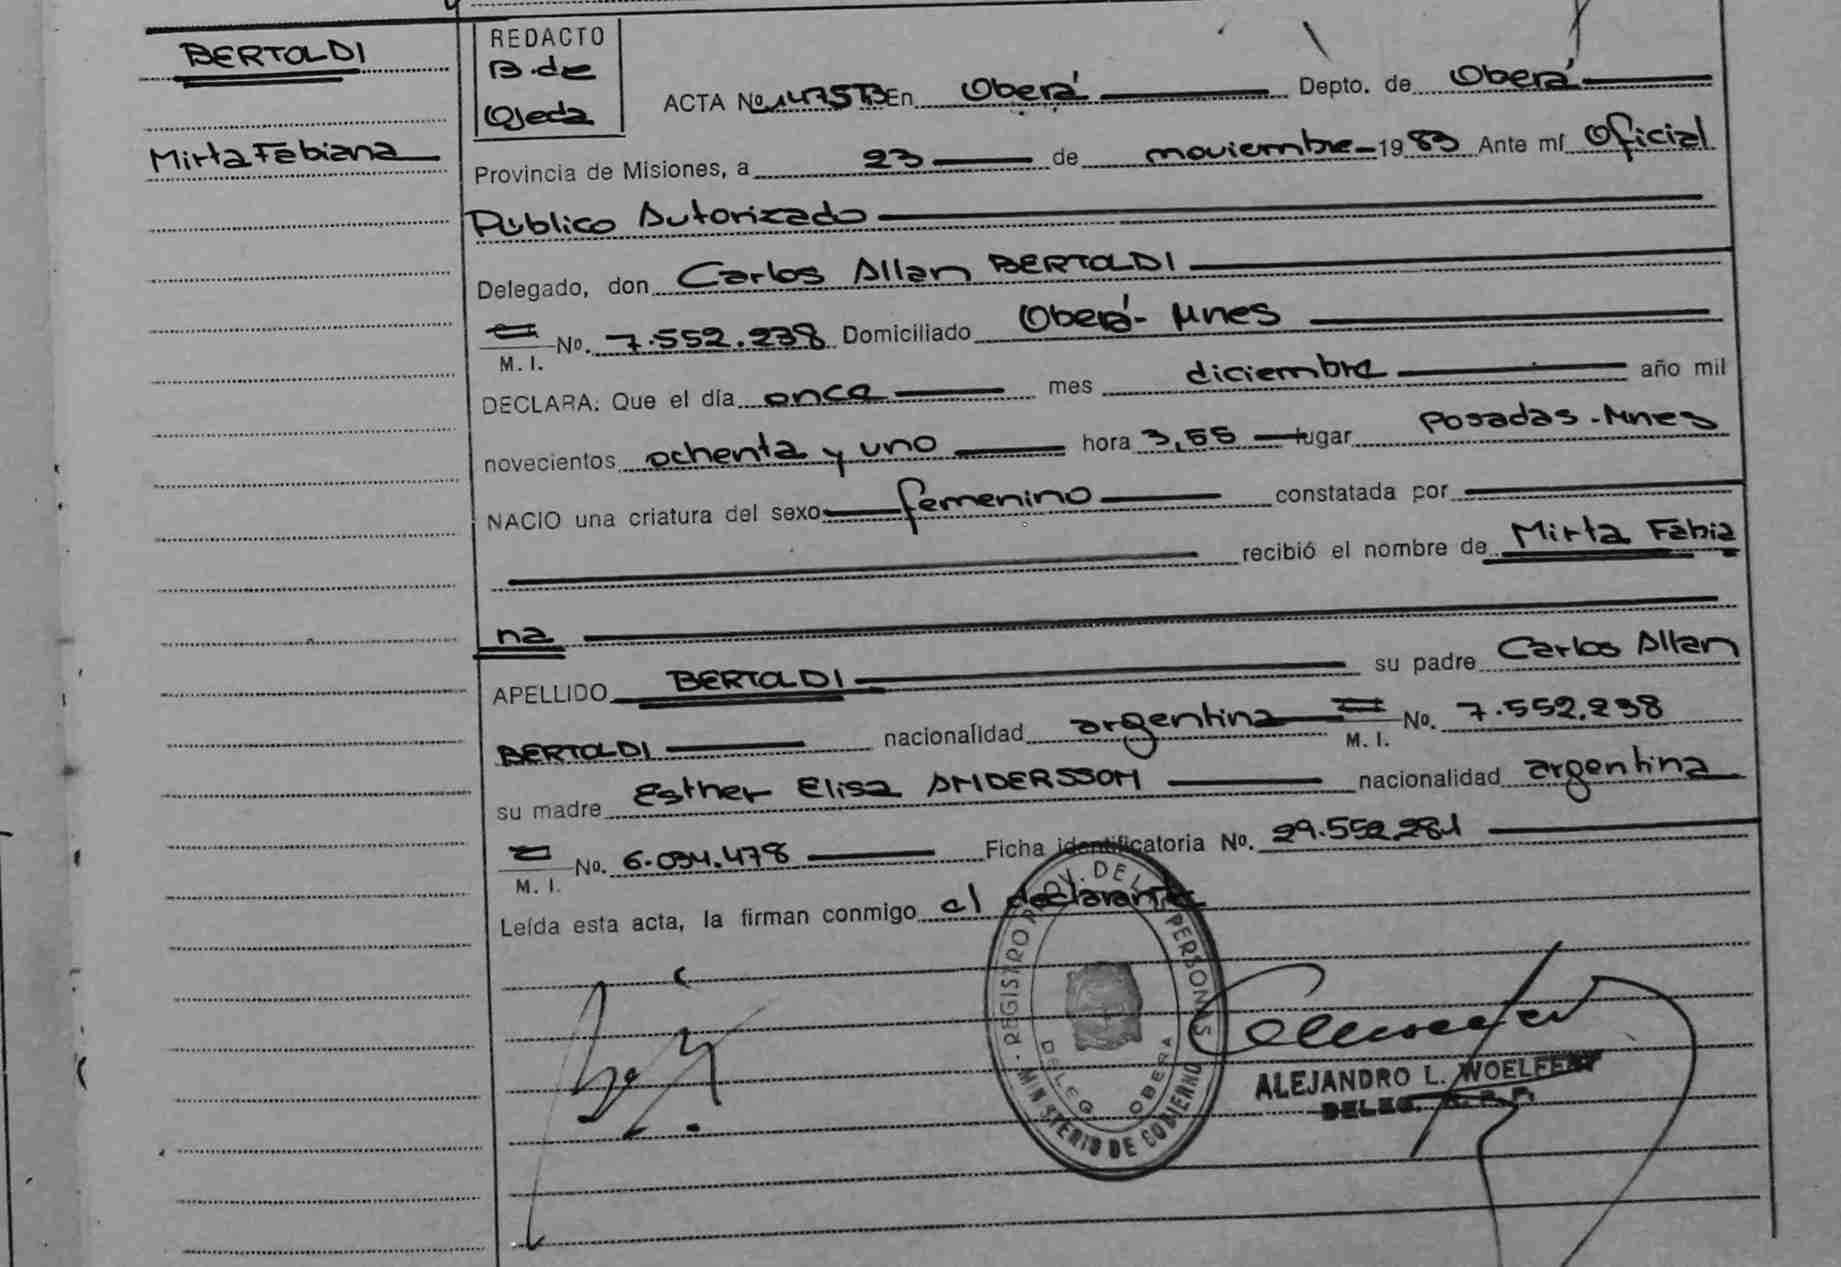 BERTOLDI
Mirta Fabiana
REDACTO
B. de
Ojeda
ACTA No. En Oberá Depto. de Oberá
Provincia de Misiones, a 23 de noviembre 1983 Ante mí Oficial
Público Autorizado
Delegado, don Carlos Allan BERTOLDI
M. I. No. 7.552.238 Domiciliado Oberá- Mnes
DECLARA: Que el día once mes diciembre año mil
novecientos ochenta y uno hora 3,55 lugar Posadas-Mnes
NACIO una criatura del sexo femenino constatada por
recibió el nombre de Mirta Fabia
na
APELLIDO BERTOLDI su padre Carlos Allan
BERTOLDI nacionalidad argentina M. I. No. 7.552.238
su madre Esther Elisa ANDERSSON nacionalidad argentina
M. I. No. 6.034.478 Ficha identificatoria No. 29.552.281
Leída esta acta, la firman conmigo el declarante
REGISTRO PROV. DE LAS PERSONAS
DELEG OBERA
MINISTERIO DE GOBIERNO
ALEJANDRO L. WOELFERT
DELEG. R. P. P.